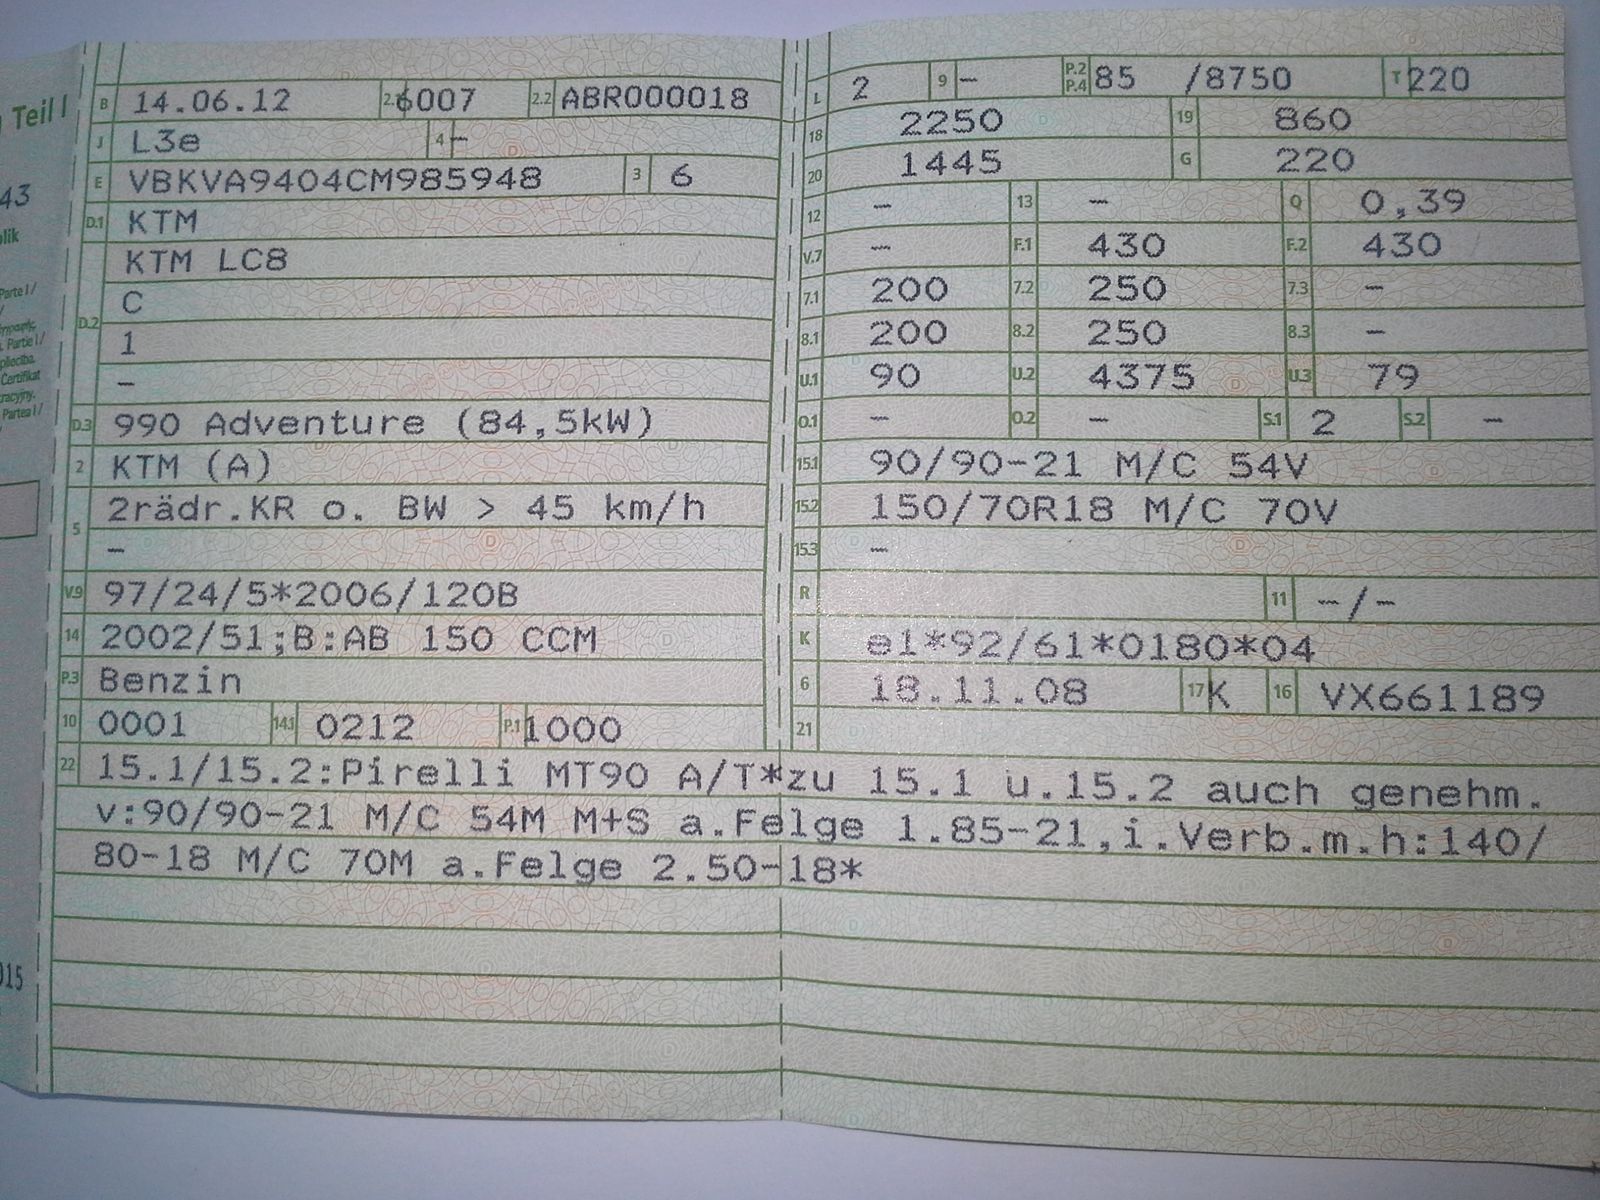 Teil I
43
blik
Parte I /
Partie I /
Certifikat
Partea I /
015
B 14.06.12 2.1 6007 2.2 ABR000018
J L3e 4 –
E VBKVA9404CM985948 3 6
D.1 KTM
D.2 KTM LC8
C
1
–
D.3 990 Adventure (84,5kW)
2 KTM (A)
5 2rädr.KR o. BW > 45 km/h
–
V.9 97/24/5*2006/120B
14 2002/51;B:AB 150 CCM
P.3 Benzin
10 0001 14.1 0212 P.1 1000
L 2 9 – P.2 P.4 85 /8750 T 220
18 2250 19 860
20 1445 G 220
12 – 13 – Q 0,39
V.7 – F.1 430 F.2 430
7.1 200 7.2 250 7.3 –
8.1 200 8.2 250 8.3 –
U.1 90 U.2 4375 U.3 79
O.1 – O.2 – S.1 2 S.2 –
15.1 90/90-21 M/C 54V
15.2 150/70R18 M/C 70V
15.3 –
R 11 –/–
K e1*92/61*0180*04
6 18.11.08 17 K 16 VX661189
21
22 15.1/15.2:Pirelli MT90 A/T*zu 15.1 u.15.2 auch genehm.
v:90/90-21 M/C 54M M+S a.Felge 1.85-21,i.Verb.m.h:140/
80-18 M/C 70M a.Felge 2.50-18*